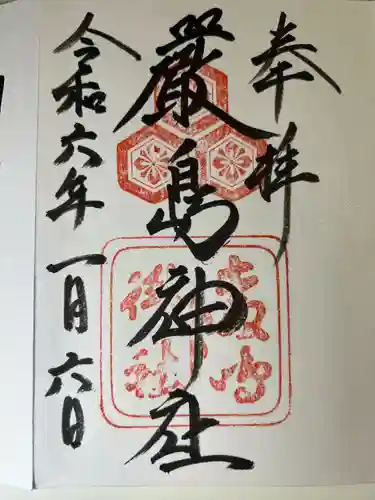 奉拝
嚴島神社
令和六年一月六日